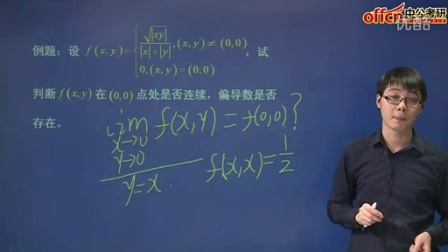 offcn 中公考研
优酷
例题：设 f(x,y)= { √|xy| / (|x|+|y|), (x,y)≠(0,0)
0, (x,y)=(0,0) ，试
判断 f(x,y) 在 (0,0) 点处是否连续，偏导数是否
存在。
lim f(x,y) = f(0,0)?
x→0
y→0
y=x. f(x,x)=1/2